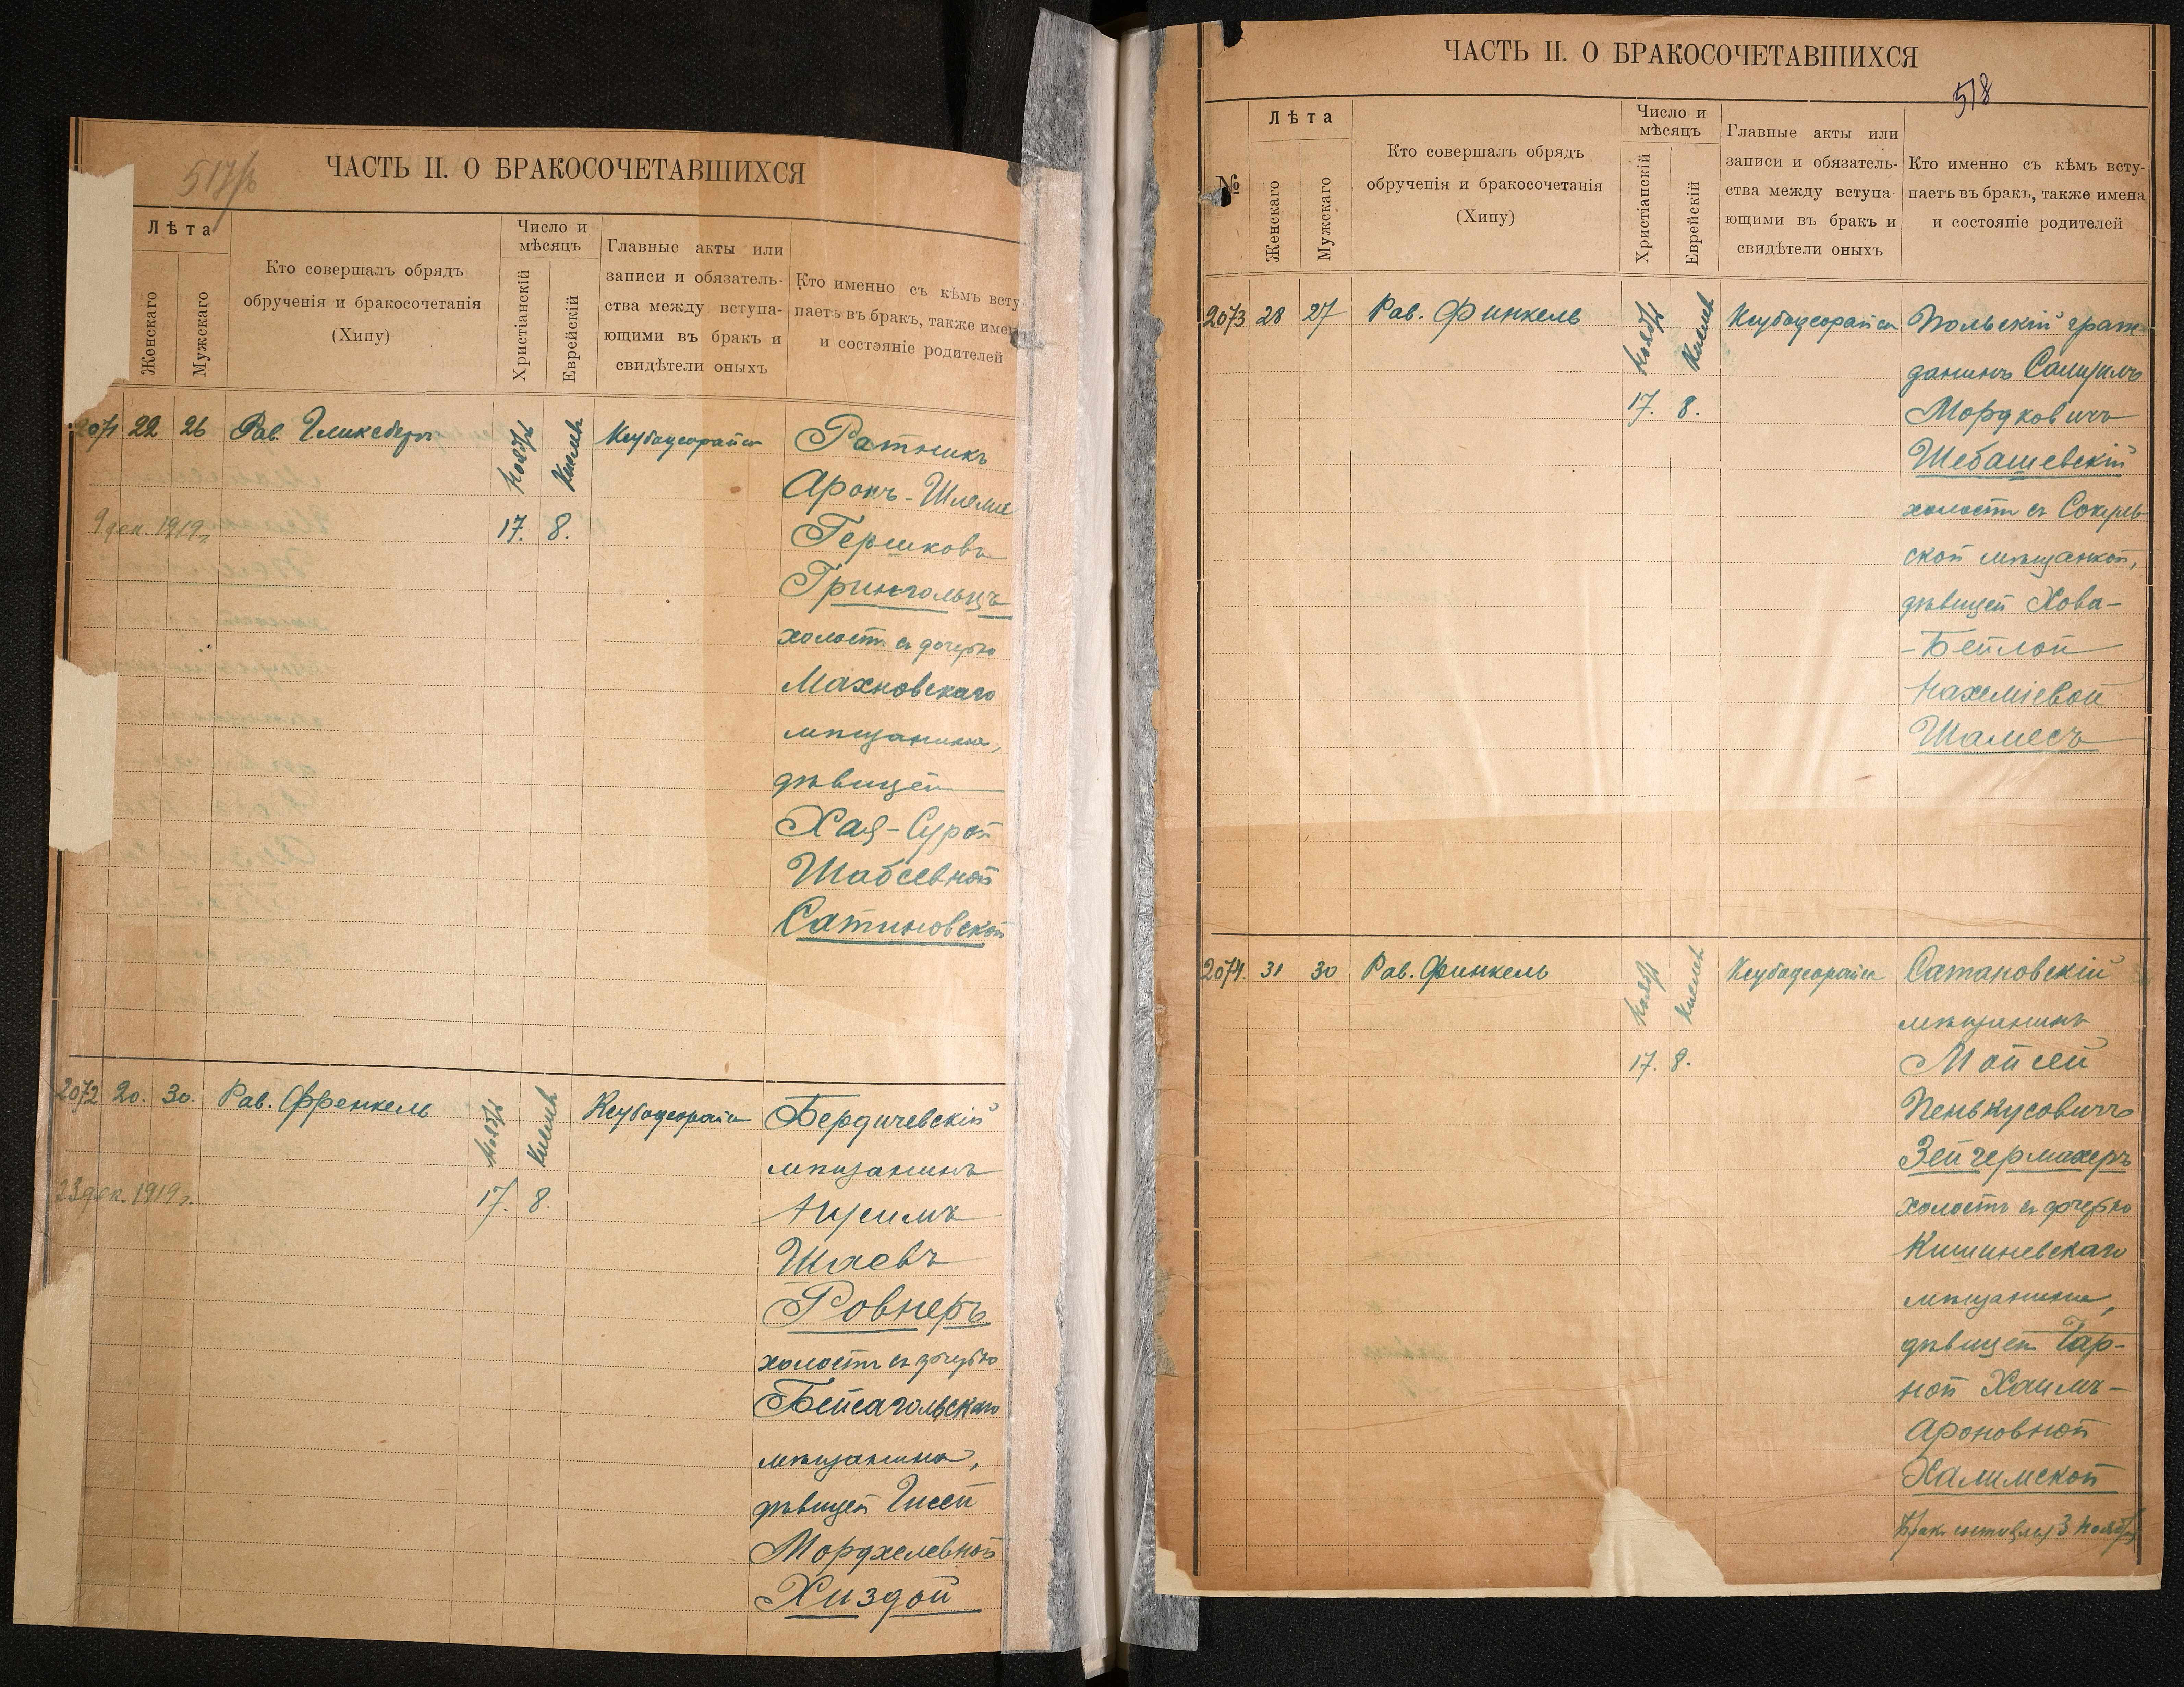 517/б
ЧАСТЬ II. О БРАКОСОЧЕТАВШИХСЯ
Лѣта
Женскаго
Мужскаго
Кто совершалъ обрядъ
обрученія и бракосочетанія
(Хипу)
Число и
мѣсяцъ
Христіанскій
Еврейскій
Главные акты или
записи и обязатель-
ства между вступа-
ющими въ бракъ и
свидѣтели оныхъ
Кто именно съ кѣмъ всту
паетъ въ бракъ, также имен
и состояніе родителей
2071 22 26 Рав. Гликсбергъ
Ноябрь Кислев
17. 8.
Ксубадеорайса
Ратникъ
Аронъ-Шлема
Гершковъ
Грингольцъ
холостъ съ дочерью
Махновскаго
мѣщанина,
дѣвицей
Хая-Сурой
Шабсевной
Сатановской
9 дек. 1919 г.
2072 20. 30. Рав. Френкель
Ноябрь Кислев
17. 8.
Ксубадеорайса
Бердичевскій
мѣщанинъ
Нусимъ
Шаевъ
Ровнеръ
холостъ съ дочерью
Бейсагольскаго
мѣщанина,
дѣвицей Гисей
Мордхелевной
Хиздой
23 дек. 1919 г.
ЧАСТЬ II. О БРАКОСОЧЕТАВШИХСЯ
518
№
Лѣта
Женскаго
Мужскаго
Кто совершалъ обрядъ
обрученія и бракосочетанія
(Хипу)
Число и
мѣсяцъ
Христіанскій
Еврейскій
Главные акты или
записи и обязатель-
ства между вступа
ющими въ бракъ и
свидѣтели оныхъ
Кто именно съ кѣмъ всту-
паетъ въ бракъ, также имена
и состояніе родителей
2073 28 27 Рав. Финкель
Ноябрь Кислев
17. 8.
Ксубадеорайса
Польскій граж-
данинъ Самуилъ
Мордковичъ
Шебашевскій
холостъ съ Сокирян-
ской мѣщанкой,
дѣвицей Хова-
-Бейлой
Нахеміевой
Шамесъ
2074. 31 30 Рав. Финкель
Ноябрь Кислев
17. 8.
Ксубадеорайса
Сатановскій
мѣщанинъ
Мойсей
Пенькусовичъ
Зейгермахеръ
холостъ съ дочерью
Кишиневскаго
мѣщанина,
дѣвицей Чар-
ной Хаимъ-
Ароновной
Халимской
Брак состоялся 3 ноября